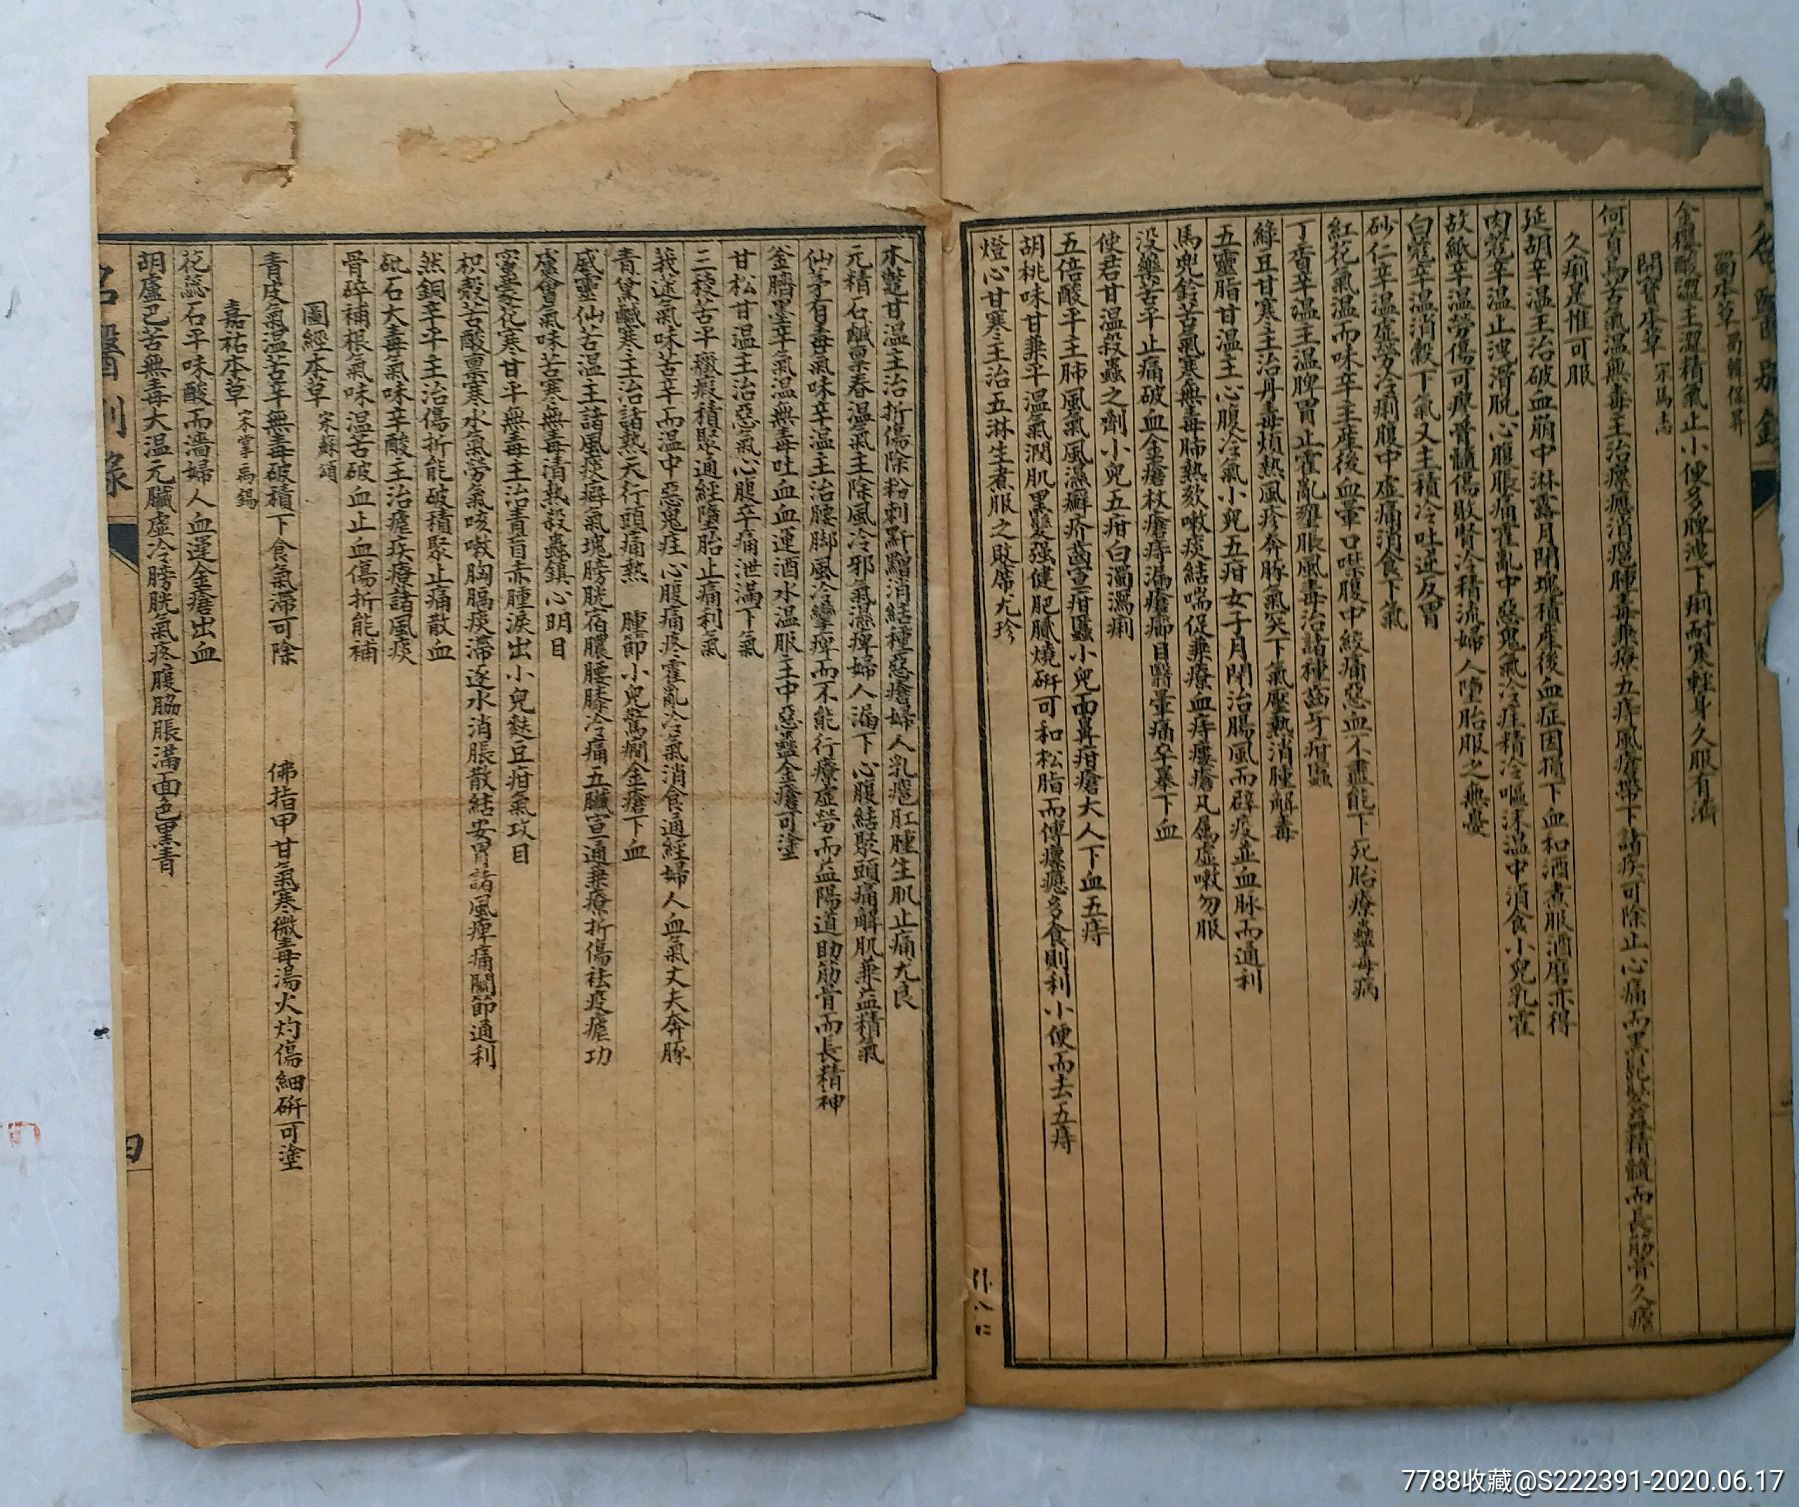 名醫別錄
蜀本草 蜀韓保昇
金櫻酸澀主澀精氣止小便多脾洩下痢耐寒輕身久服有濟
開寶本草 宋馬志
何首烏苦氣溫無毒主治瘰癧消癰腫毒兼療五痔風瘡帶下諸疾可除止心痛而黑髭鬢益精髓而長筋骨久瘧
久痢是惟可服
延胡辛溫主治破血崩中淋露月閉塊積產後血症因損下血和酒煮服酒磨亦得
肉蔻辛溫止洩滑脫心腹脹痛霍亂中惡鬼氣冷疰精冷嘔沫溫中消食小兒乳霍
故紙辛溫勞傷可療骨髓傷敗腎冷精流婦人墮胎服之無憂
白蔻辛溫消穀下氣又主積冷吐逆反胃
砂仁辛溫虛勞冷痢腹中虛痛消食下氣
紅花氣溫而味辛主產後血暈口噤腹中絞痛惡血不盡能下死胎療蠱毒病
丁香辛溫主溫脾胃止霍亂壅脹風毒治諸種齒牙疳䘌
綠豆甘寒主治丹毒煩熱風疹奔豚氣突下氣壓熱消腫解毒
五靈脂甘溫主心腹冷氣小兒五疳女子月閉治腸風而辟疫並血脉而通利
馬兜鈴苦氣寒無毒肺熱欬嗽痰結喘促兼療血痔瘻瘡凡屬虛嗽勿服
沒藥苦平止痛破血金瘡杖瘡痔漏瘡癤目翳暈痛卒暴下血
使君甘溫殺蟲之劑小兒五疳白濁瀉痢
五倍酸平主肺風氣風濕癬疥齒宣疳䘌小兒面鼻疳瘡大人下血五痔
胡桃味甘兼平溫氣潤肌黑髮強健肥膩燒研可和松脂而傅瘰癧多食則利小便而去五痔
燈心甘寒主治五淋生煮服之敗席尤珍
木鱉甘溫主治折傷除粉刺䵟䵳消結種惡瘡婦人乳癰肛腫生肌止痛尤良
元精石鹹稟春溫氣主除風冷邪氣濕痺婦人漏下心腹結聚頭痛解肌兼益精氣
仙茅有毒氣味辛溫主治腰脚風冷攣痺而不能行療虛勞而益陽道助筋骨而長精神
釜臍墨辛氣溫無毒吐血血運酒水溫服主中惡蠱金瘡可塗
甘松甘溫主治惡氣心腹卒痛泄滿下氣
三稜苦平癥瘕積聚通經墮胎止痛利氣
莪朮氣味苦辛而溫中惡鬼疰心腹痛疼霍亂冷氣消食通經婦人血氣丈夫奔豚
青黛鹹寒主治諸熱天行頭痛熱腫節小兒驚癇金瘡下血
威靈仙苦溫主諸風痰癖氣塊膀胱宿膿腰膝冷痛五臟宣通兼療折傷袪疫瘧功
蘆薈氣味苦寒無毒清熱殺蟲鎮心明目
蜜蒙花寒甘平無毒主治青盲赤腫淚出小兒麩豆疳氣攻目
枳殼苦酸稟寒水氣勞氣咳嗽胸膈痰滯逐水消脹散結安胃諸風痺痛關節通利
然銅辛平主治傷折能破積聚止痛散血
砒石大毒氣味辛酸主治瘧疾療諸風痰
骨碎補根氣味溫苦破血止血傷折能補
圖經本草 宋蘇頌
青皮氣溫苦辛無毒破積下食氣滯可除 佛指甲甘氣寒微毒湯火灼傷細研可塗
嘉祐本草 宋掌禹錫
花蕊石平味酸而濇婦人血運金瘡出血
胡蘆巴苦無毒大溫元臟虛冷膀胱氣疼腹脇脹滿面色黑青
名醫別錄
四
7788收藏@S222391-2020.06.17